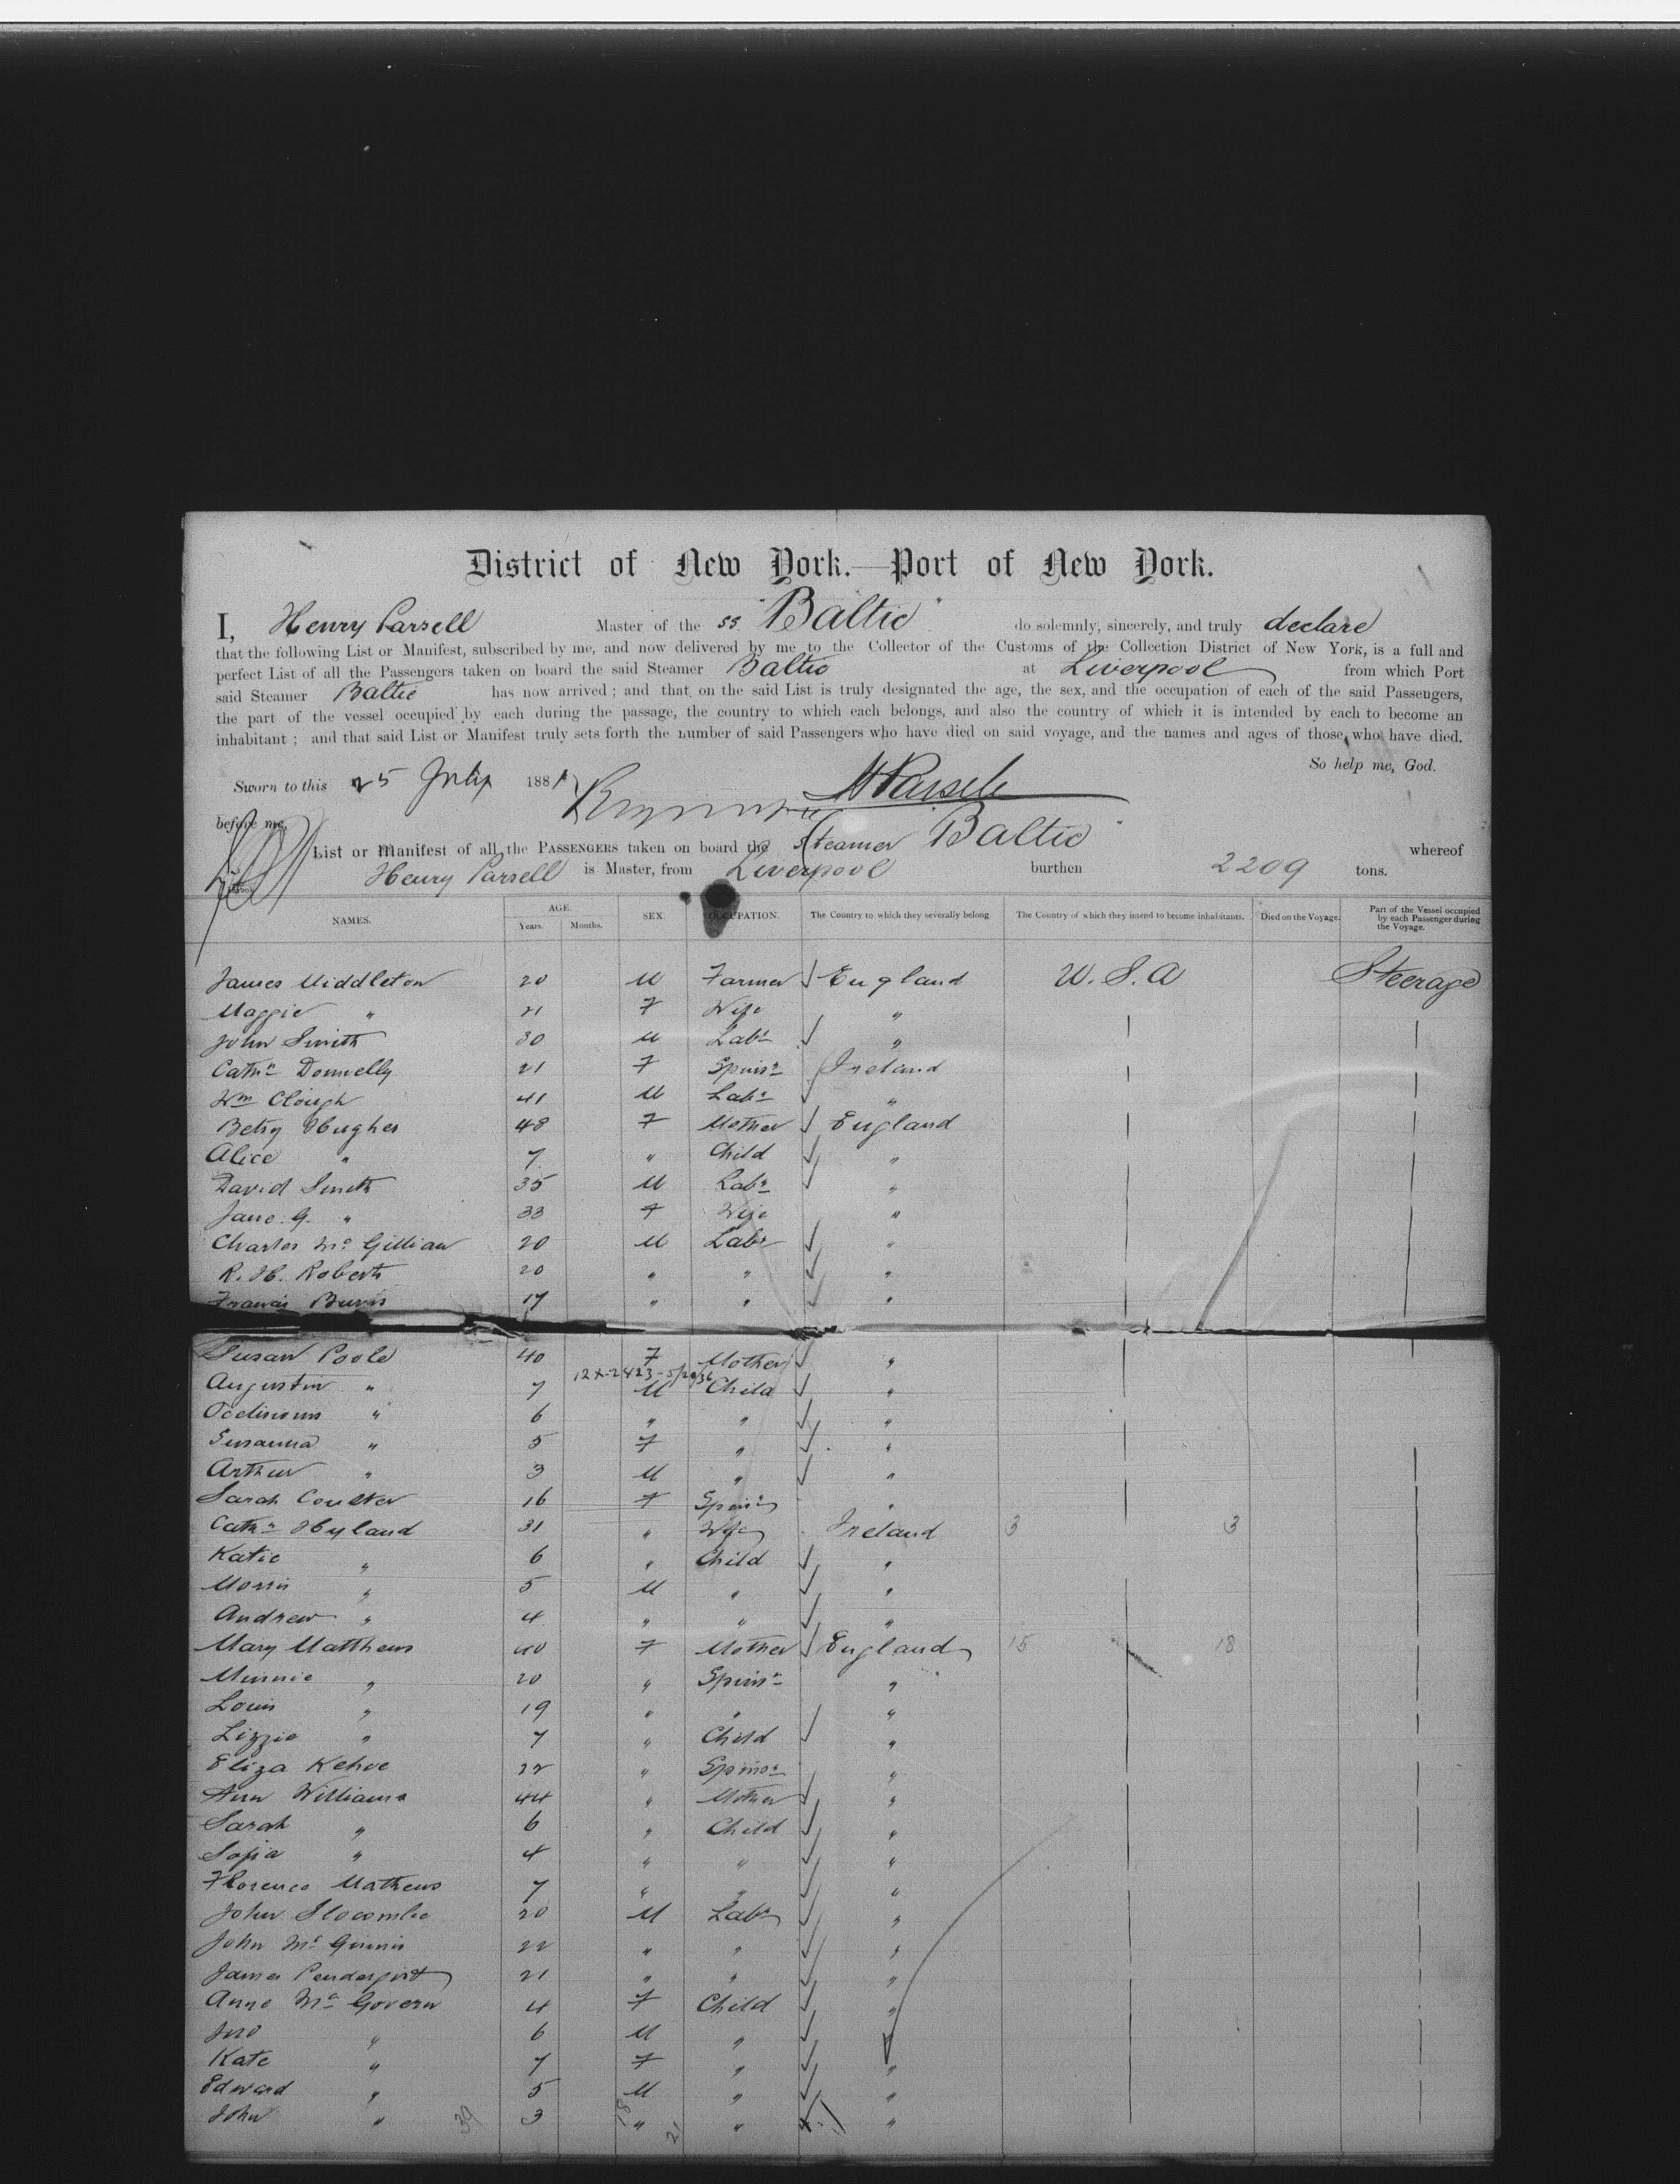 District of New York.—Port of New York.
I, Henry Parsell Master of the SS. "Baltic" do solemnly, sincerely, and truly declare
that the following List or Manifest, subscribed by me, and now delivered by me to the Collector of the Customs of the Collection District of New York, is a full and
perfect List of all the Passengers taken on board the said Steamer Baltic at Liverpool from which Port
said Steamer Baltic has now arrived; and that on the said List is truly designated the age, the sex, and the occupation of each of the said Passengers,
the part of the vessel occupied by each during the passage, the country to which each belongs, and also the country of which it is intended by each to become an
inhabitant; and that said List or Manifest truly sets forth the number of said Passengers who have died on said voyage, and the names and ages of those who have died.
So help me, God.
Sworn to this 25 July 1881 H Parsell
before me,
List or Manifest of all the PASSENGERS taken on board the Steamer Baltic whereof
Henry Parsell is Master, from Liverpool burthen 2209 tons.
NAMES. AGE. Years. Months. SEX. OCCUPATION. The Country to which they severally belong. The Country of which they intend to become inhabitants. Died on the Voyage. Part of the Vessel occupied by each Passenger during the Voyage.
James Middleton 20 M Farmer England U.S.A Steerage
Maggie " 21 F Wife "
John Smith 30 M Labr "
Cathn Donnelly 21 F Spinsr Ireland
Wm Clough 41 M Labr "
Betsy Hughes 48 F Mother England
Alice " 7 " Child "
David Smith 35 M Labr "
Jane G. " 33 F Wife "
Charles Mc Gillian 20 M Labr "
R. H. Roberts 20 " " "
Francis Burns 17 " " "
Susan Poole 40 F Mother "
12X-2423-5/20/36
Augustin " 7 M Child "
" 6 " " "
Susanna " 5 F " "
Arthur " 3 M " "
Sarah Coulter 16 F Spinsr "
Cathn Hyland 31 " Wife Ireland 3 3
Katie " 6 " Child "
Morris " 5 M " "
Andrew " 4 " " "
Mary Matthews 40 F Mother England 15 18
Minnie " 20 " Spinsr "
Louis " 19 " " "
Lizzie " 7 " Child "
Eliza Kehoe 22 " Spinsr "
Ann Williams 44 " Mother "
Sarah " 6 " Child "
Sofia " 4 " " "
Florence Mathews 7 " " "
John Slocombe 20 M Labr "
John Mc Ginnis 22 " " "
James Pendergist 21 " " "
Anne Mc Govern 4 F Child "
Jno " 6 M " "
Kate " 7 F " "
Edward " 5 M " "
John " 3 " " "
39 18 21